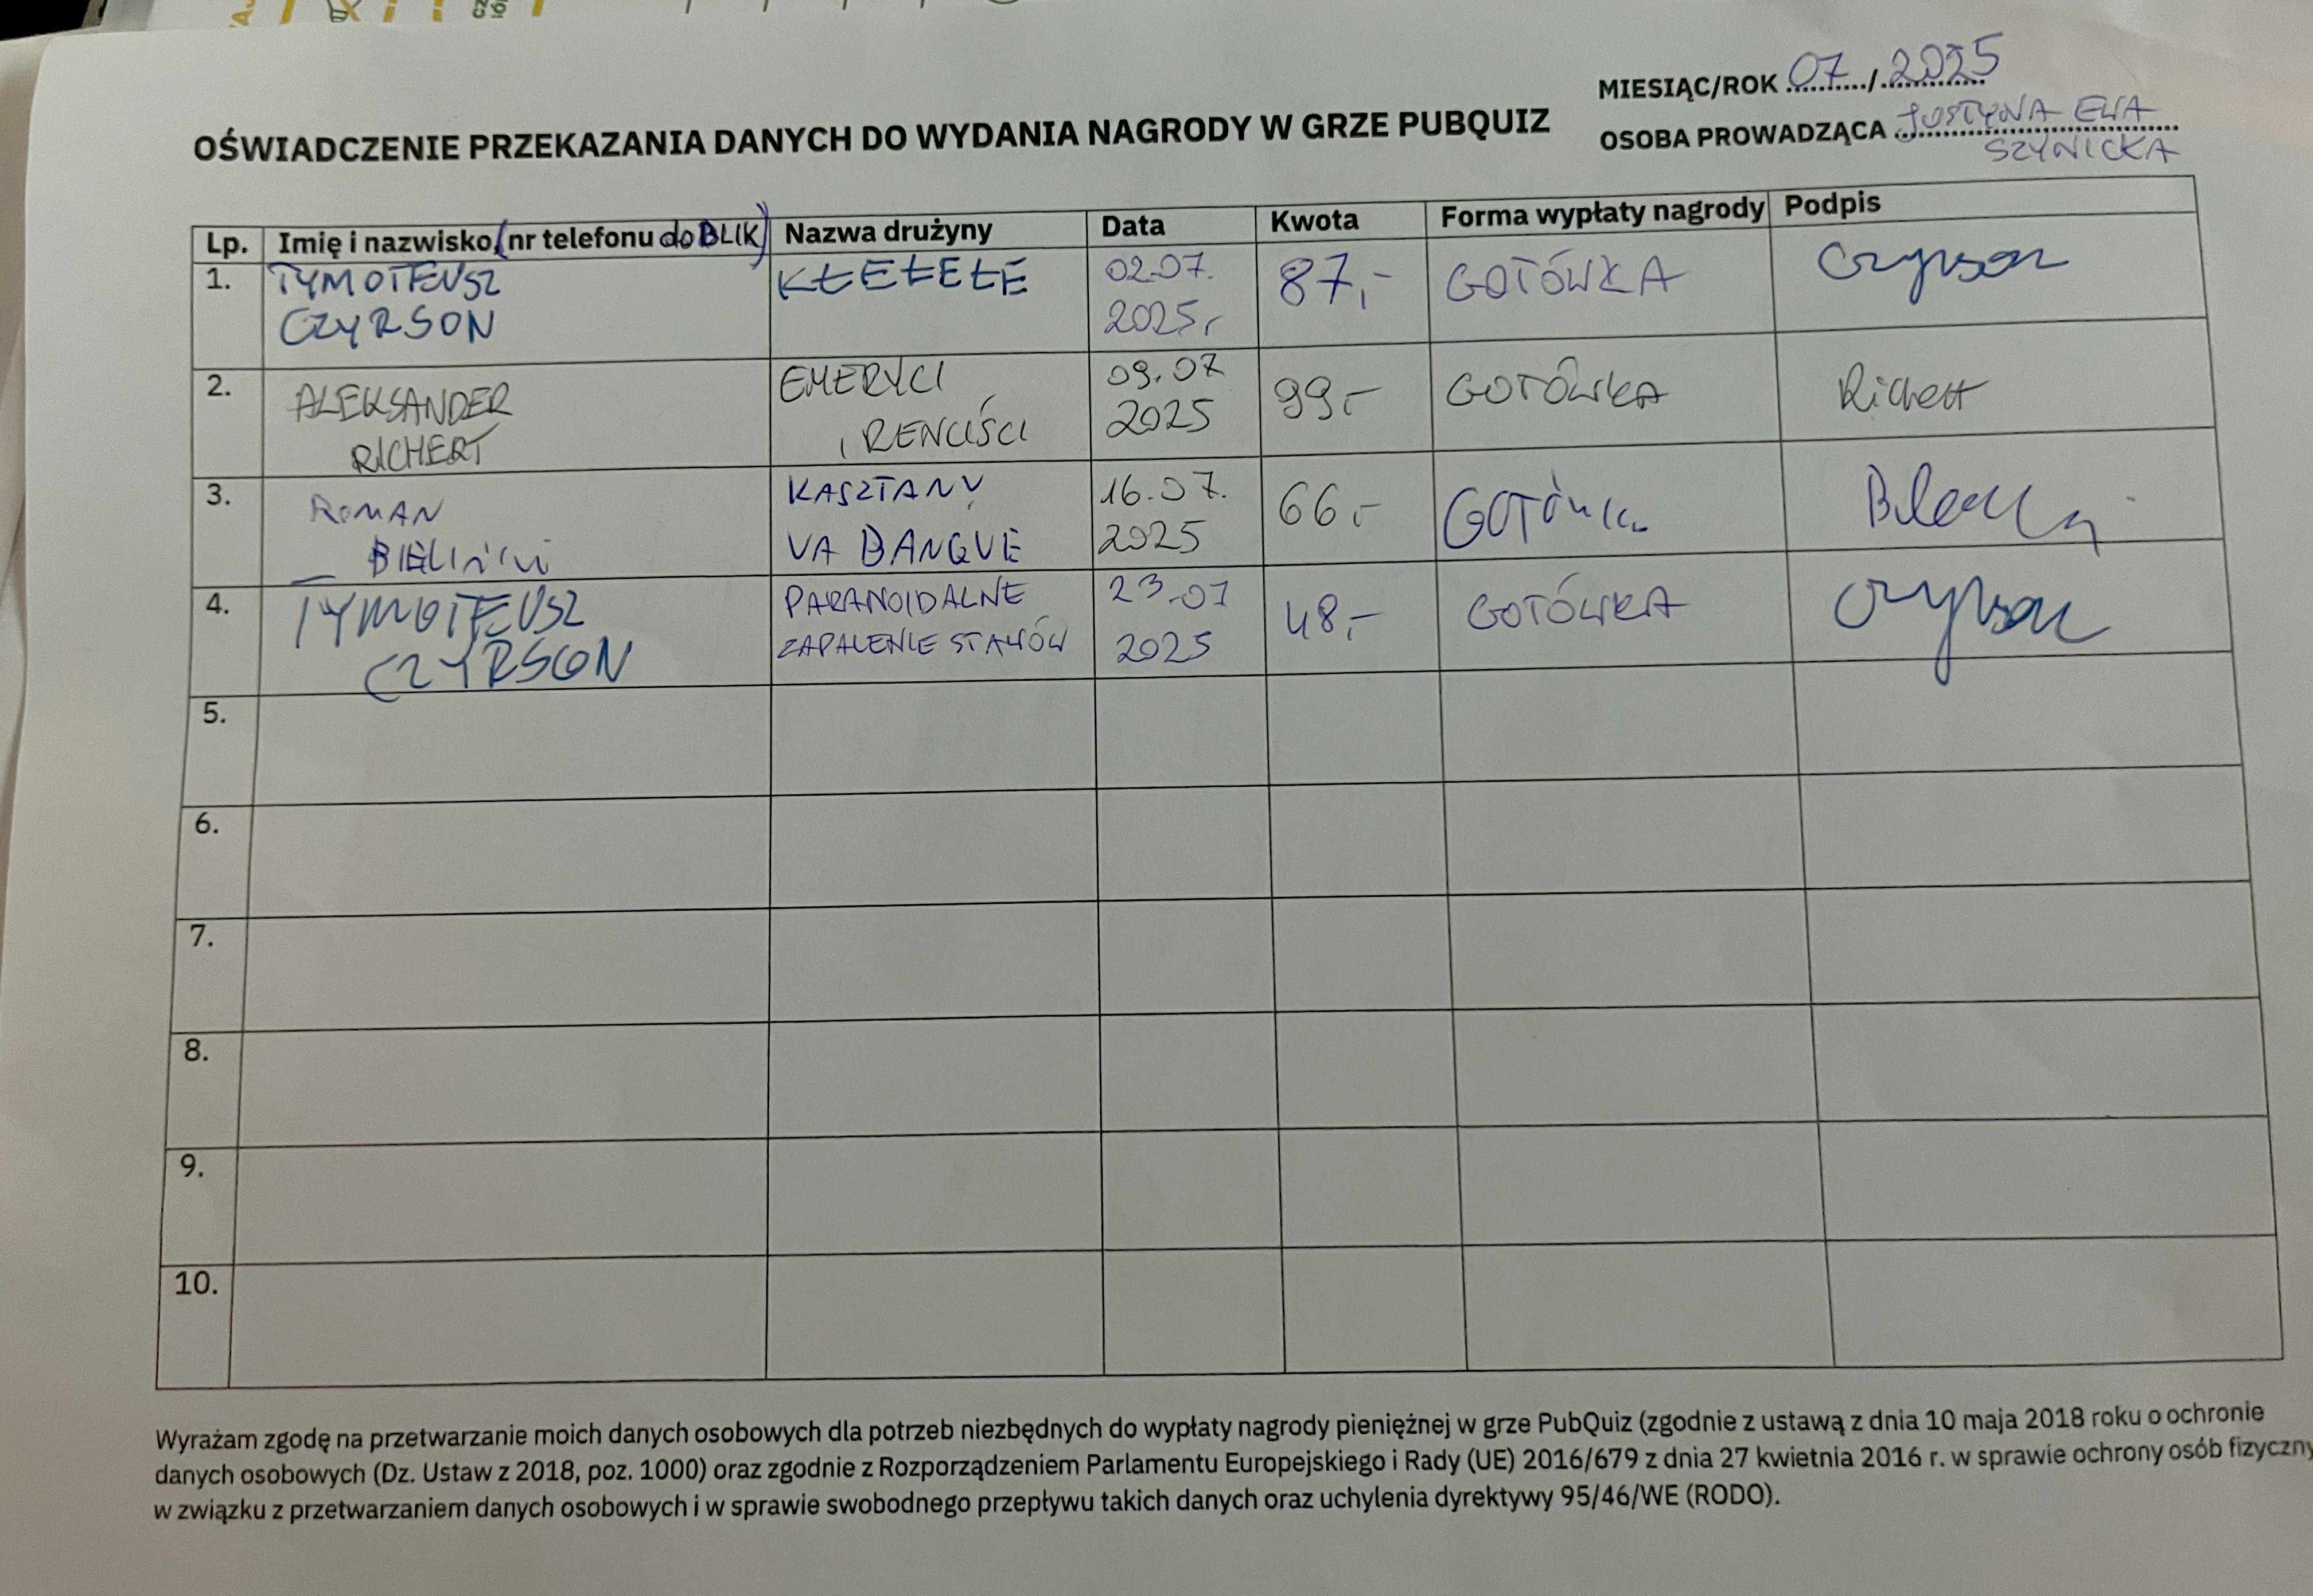 MIESIĄC/ROK 07/2025
OŚWIADCZENIE PRZEKAZANIA DANYCH DO WYDANIA NAGRODY W GRZE PUBQUIZ
OSOBA PROWADZĄCA JUSTYNA EWA
SZYNICKA
Lp. Imię i nazwisko, (nr telefonu do BLIK) Nazwa drużyny Data Kwota Forma wypłaty nagrody Podpis
1. TYMOTEUSZ KŁEŁEŁE 02.07. 87,- GOTÓWKA Czyrson
CZYRSON 2025r
2. ALEKSANDER EMERYCI 09.07 99,- GOTÓWKA Richert
RICHERT I RENCIŚCI 2025
3. ROMAN KASZTANY 16.07. 66,- GOTÓWKA
VA BANQUE 2025
4. TYMOTEUSZ PARANOIDALNE 23.07 48,- GOTÓWKA Czyrson
CZYRSON ZAPALENIE STAWÓW 2025
5.
6.
7.
8.
9.
10.
Wyrażam zgodę na przetwarzanie moich danych osobowych dla potrzeb niezbędnych do wypłaty nagrody pieniężnej w grze PubQuiz (zgodnie z ustawą z dnia 10 maja 2018 roku o ochronie
danych osobowych (Dz. Ustaw z 2018, poz. 1000) oraz zgodnie z Rozporządzeniem Parlamentu Europejskiego i Rady (UE) 2016/679 z dnia 27 kwietnia 2016 r. w sprawie ochrony osób fizyczny
w związku z przetwarzaniem danych osobowych i w sprawie swobodnego przepływu takich danych oraz uchylenia dyrektywy 95/46/WE (RODO).